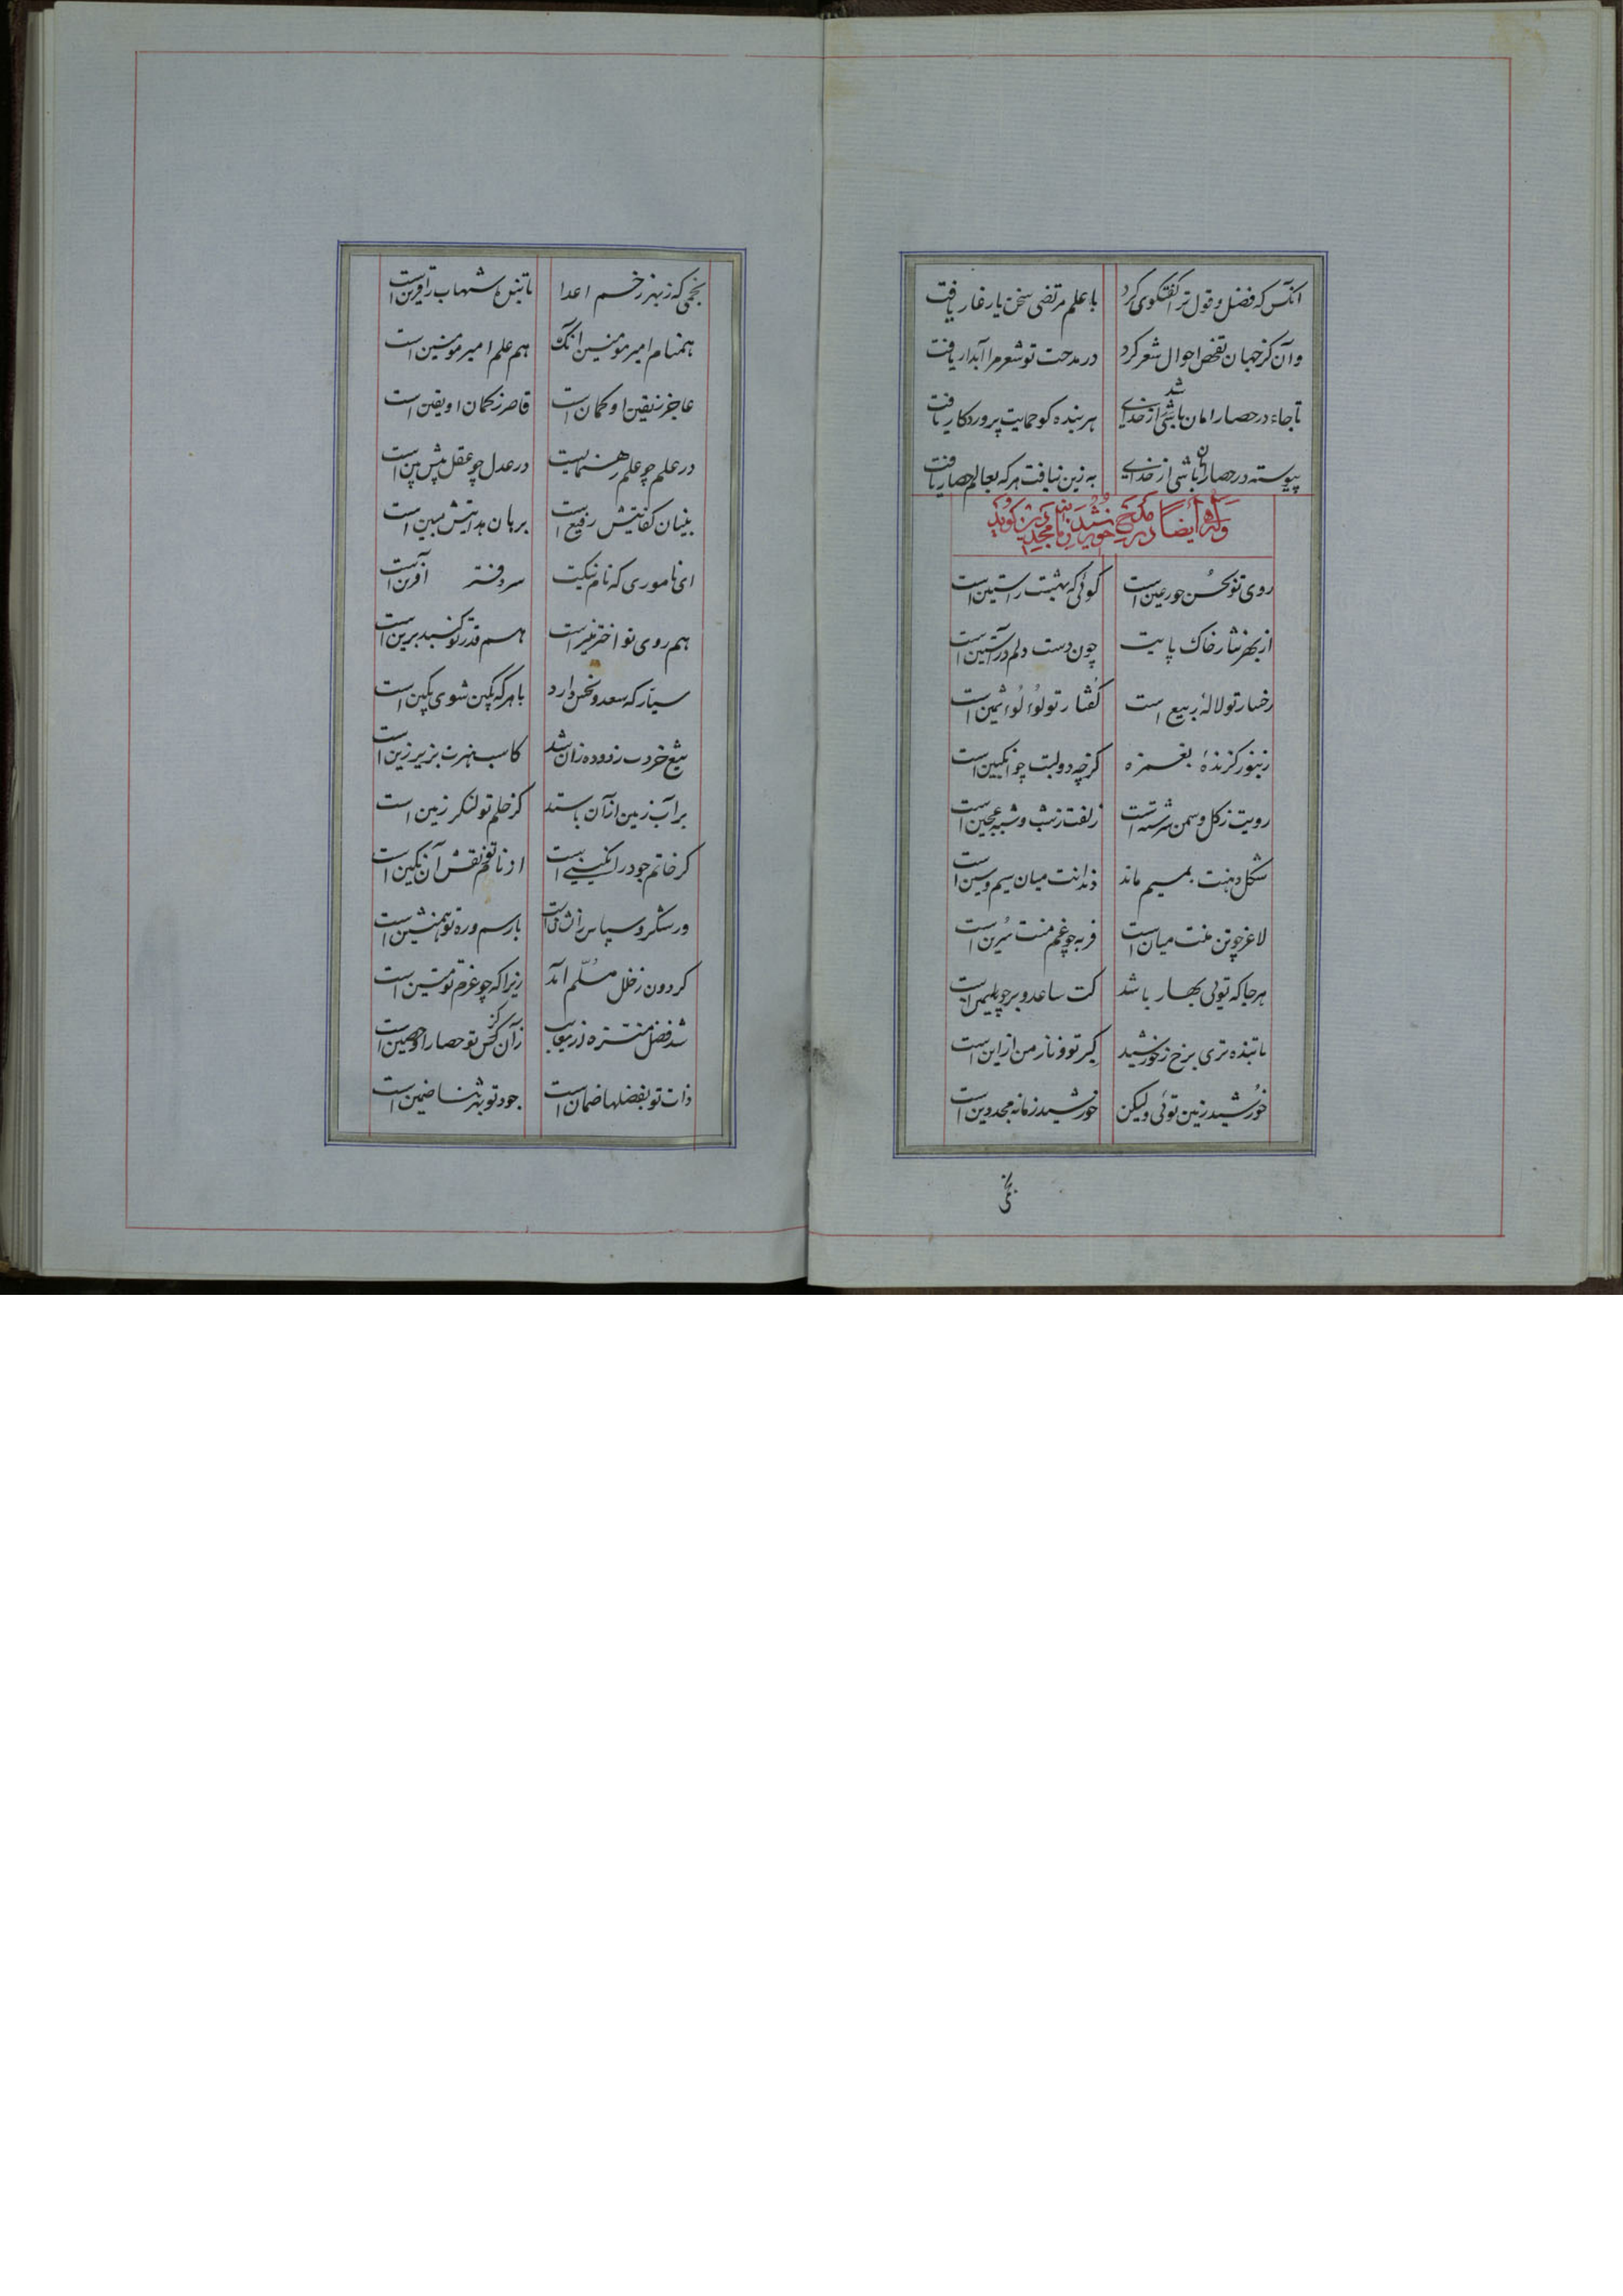 آنکس که فضل و قول ترا گفتگوی کرد با علم مرتضی سخن یار غار یافت
وآن کز جهان تفحص احوال شعر کرد در مدحت تو شعر مرا آبدار یافت
تا جاء در حصار امان باشی از خدای هر بنده کو حمایت پروردکار یافت
پیوسته در حصار امان باشی از خدای به زین نیافت هرکه بعالم حصار یافت
وله ایضا در مدح مجدالدین گوید
روی تو بحسن حور عین است گوئی که بهشت راستین است
از بهر نثار خاک پایت چون دست دلم در آستین است
رخسار تو لالهٔ ربیع است گفتار تو لؤلؤ ثمین است
زنبور گزندهٔ بغمزه گرچه دو لبت چو انگبین است
رویت ز گل و سمن سرشته است زلفت ز شب و شبه عجین است
شکل دهنت بمیم ماند دندانت میان میم سین است
لاغر چو تن منت میان است فربه چو غم منت سرین است
هرجا که توئی بهار باشد کت ساعد و بر چو یاسمین است
تابنده تری برخ ز خورشید کبر تو و ناز من از این است
خورشید زمین توئی ولیکن خورشید زمانه مجد دین است
نجمی که ز بهر زخم اعدا با تیرش شهاب را قرین است
همنام امیر مومنین آنک هم علم امیر مومنین است
عاجز ز یقین او گمان است قاصر ز گمان او یقین است
در علم چو علم رهنمایست در عدل چو عقل پیش بین است
بنیان کفایتش رفیع است برهان هدایتش مبین است
ای ناموری که نام نیکت سر دفتر آفرین است
هم روی تو اختر منیر است هم قدر تو گنبد برین است
سیاره که سعد و نحس دارد با هرکه بکین شوی بکین است
تیغ خردت زدوده زان شد کاسب هنرت بزیر زین است
بر آب زمین از آن باستد کز حلم تو لنگر زمین است
گر خاتم جود را نگینی است از نام تو نقش آن نگین است
ور شکر و سپاس را نشان است با رسم و ره تو همنشین است
گردون ز خلل مسلم آمد زیرا که چو عزم تو متین است
شد فضل منزه از معایب زآن کز تو حصار او حصین است
ذات تو بفضلها ضمان است جود تو بهر ثنا ضمین است